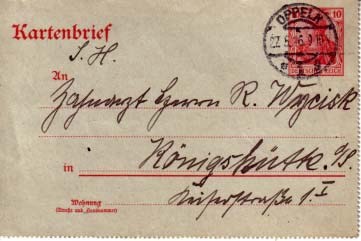 Kartenbrief
10
OPPELN
DEUTSCHES REICH
S. H.
An
Zahnarzt Herrn R. Wycisk
in Königshütte O/S
Kaiserstraße 1 I
Wohnung
(Straße und Hausnummer)